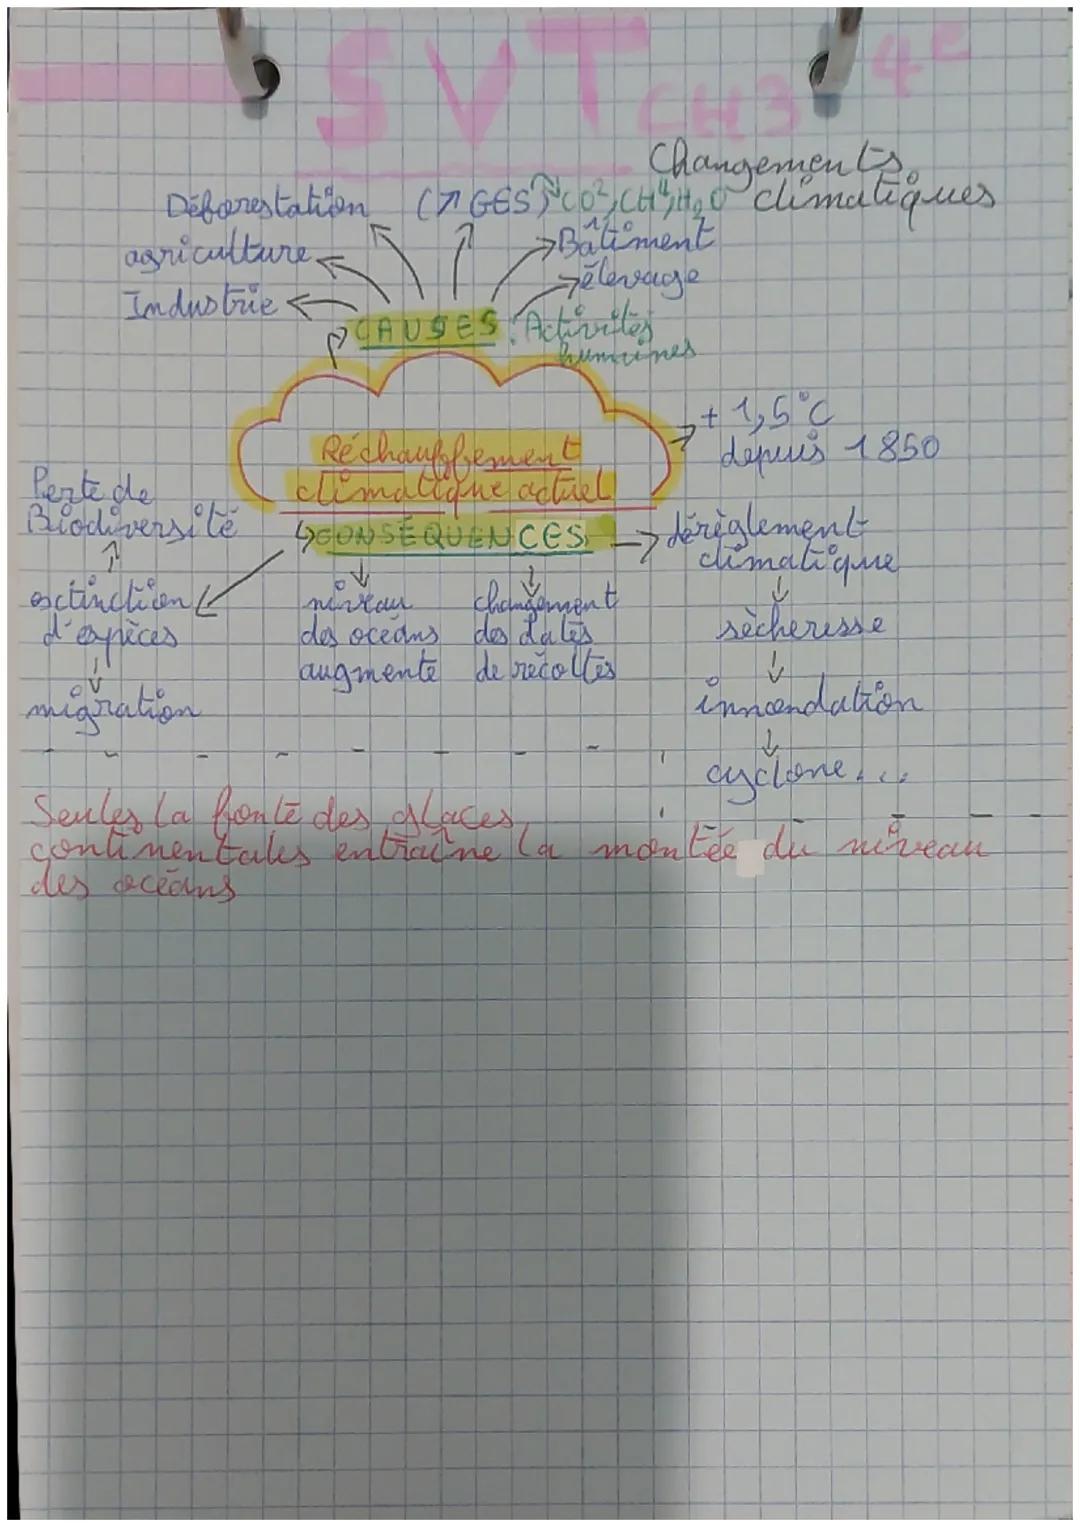 SVT CH3 4e
Changements
climatiques
Déforestation (↗ GES) CO², CH⁴, H₂O
agriculture
Bâtiment
élevage
Industrie
CAUSES : Activités
humaines
+ 1,5°C
depuis 1850
Réchauffement
climatique actuel
Perte de
Biodiversité
↳CONSÉQUENCES
→ dérèglement
climatique
extinction
d'espèces
migration
niveau
des océans
augmente
changement
des dates
de récoltes
sècheresse
innondation
cyclone...
Seules la fonte des glaces
continentales entraîne la montée du niveau
des océans